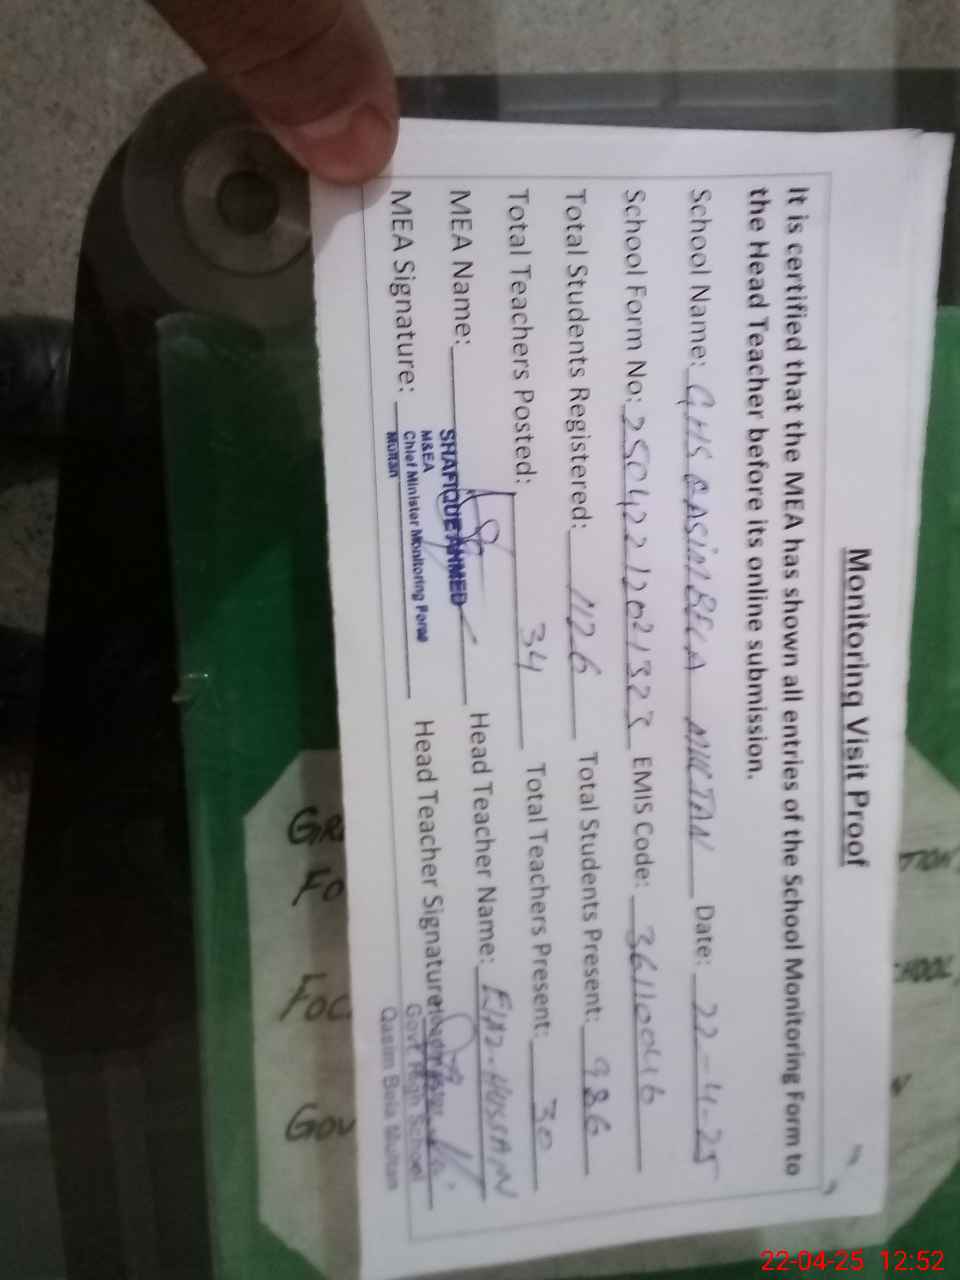 Monitoring Visit Proof
It is certified that the MEA has shown all entries of the School Monitoring Form to
the Head Teacher before its online submission.
School Name: GHS QASIM BELA MULTAN Date: 22-4-25
School Form No: 25042212021323 EMIS Code: 36110046
Total Students Registered: 1126 Total Students Present: 986
Total Teachers Posted: 34 Total Teachers Present: 30
MEA Name: Head Teacher Name: HUSSAIN
SHAFIQUE AHMED
M&EA
MEA Signature: Head Teacher Signature:
Chief Minister Monitoring Force
Multan
Govt High School
Qasim Bela Multan
FO
GOV
22-04-25 12:52